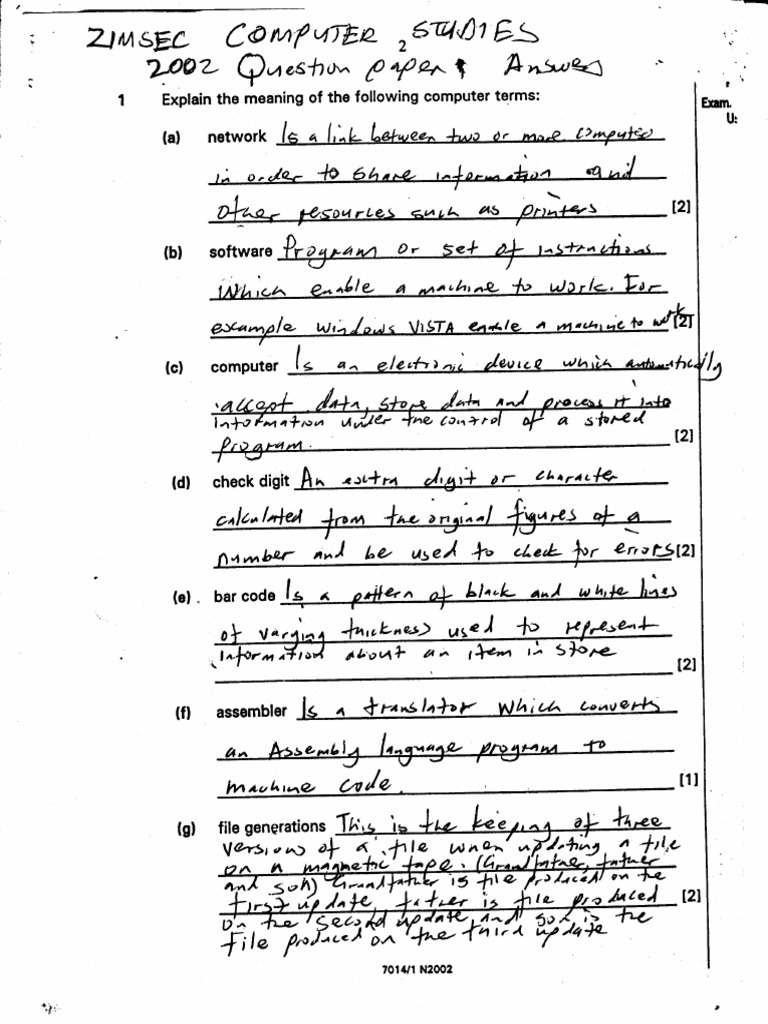 ZIMSEC COMPUTER STUDIES
2
2002 Question paper 1 Answers
1 Explain the meaning of the following computer terms:
Exam.
U:
(a) network Is a link between two or more computers
in order to share information and
other resources such as printers [2]
(b) software Program or set of instructions
which enable a machine to work. For
example windows VISTA enable a machine to work [2]
(c) computer Is an electronic device which automatically
accept data, store data and process it into
information under the control of a stored
program. [2]
(d) check digit An extra digit or character
calculated from the original figures of a
number and be used to check for errors [2]
(e) . bar code Is a pattern of black and white lines
of varying thickness used to represent
information about an item in store
[2]
(f) assembler Is a translator which converts
an Assembly language program to
machine code. [1]
(g) file generations This is the keeping of three
versions of a file when updating a file
on a magnetic tape. (Grandfather, father
and son) Grandfather is file produced on the
first update, father is file produced [2]
on the second update and son is the
file produced on the third update
7014/1 N2002